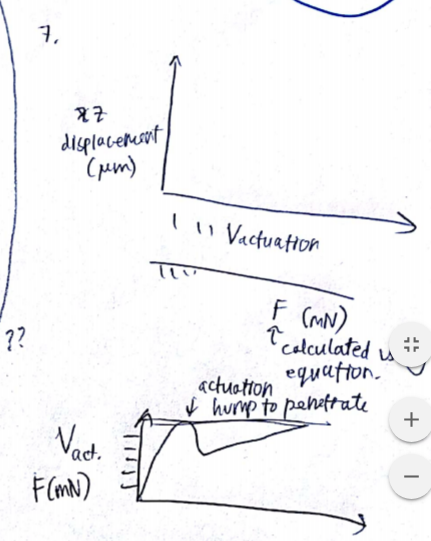 7.
z
displacement
(μm)
Vactuation
F (mN)
??
calculated
equation.
actuation
hump to penetrate
Vact.
F(mN)